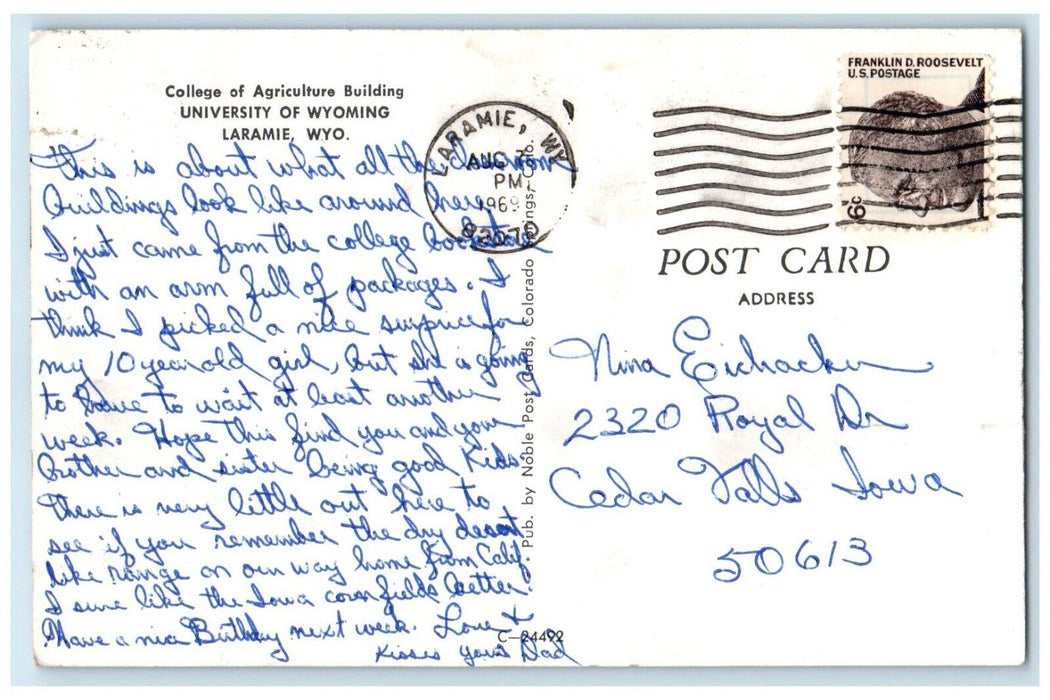 College of Agriculture Building
UNIVERSITY OF WYOMING
LARAMIE, WYO.
This is about what all the classroom
buildings look like around here.
I just came from the college bookstore
with an arm full of packages. I
think I picked a nice surprice for
my 10 year old girl, but she is going
to have to wait at least another
week. Hope this find you and your
brother and sister being good kids.
There is very little out here to
see if you remember the dry desert
like range on our way home from Calif.
I sure like the Iowa corn fields better!
Have a nice Birthday next week. Love &
Kisses your Dad
C-24492
Pub. by Noble Post Cards, Colorado Springs, Colo.
LARAMIE, WY
AUG 7
PM
1969
82070
FRANKLIN D. ROOSEVELT
U.S. POSTAGE
6c
POST CARD
ADDRESS
Nina Eichacker
2320 Royal Dr
Cedar Falls Iowa
50613